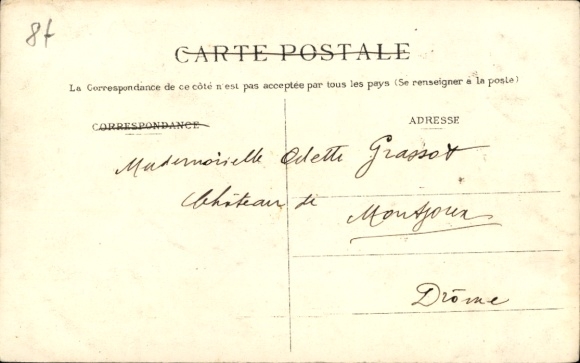 8f
CARTE POSTALE
La Correspondance de ce côté n'est pas acceptée par tous les pays (Se renseigner à la poste)
CORRESPONDANCE
ADRESSE
Mademoiselle Odette Grassot
Château de Montjoux
Drôme